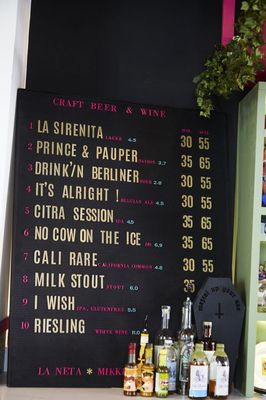 CRAFT BEER & WINE
1 LA SIRENITA LAGER 4.5 30 55
2 PRINCE & PAUPER SAISON 5.7 35 65
3 DRINK'N BERLINER SOUR 2.8 30 55
4 IT'S ALRIGHT! BELGIAN ALE 4.5 30 55
5 CITRA SESSION IPA 4.5 35 65
6 NO COW ON THE ICE 6.9 35 65
7 CALI RARE CALIFORNIA COMMON 4.6 30 55
8 MILK STOUT STOUT 6.0 35
9 I WISH IPA, GLUTENFREE 5.5
10 RIESLING WHITE WINE 11.0
LA NETA * MIKKE